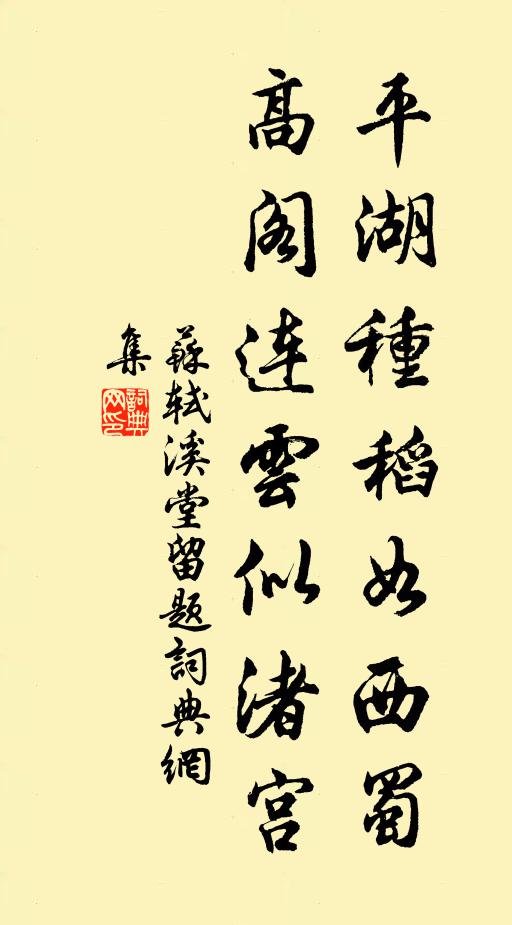 平湖種稻如西蜀
高阁連雲似渚宫
蘇軾溪堂留题詞典網
集
詞典
网印